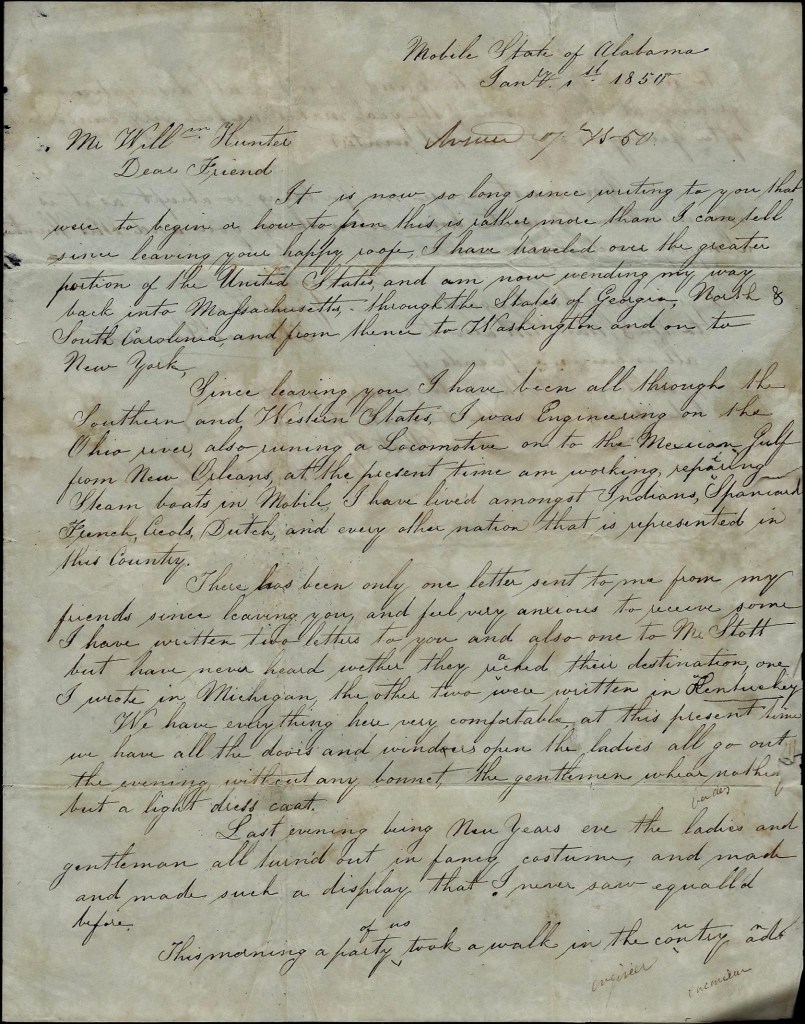 Mobile State of Alabama
Jany. 1st 1850
Mr Willm Hunter
Dear Friend
It is now so long since writing to you that
were to begin or how to this is rather more than I can tell
since leaving your happy roofe, I have traveled over the greater
portion of the United States, and am now wending my way
back into Massachusetts, through the States of Georgia, North &
South Carolinia, and from thence to Washington and on to
New York,
Since leaving you I have been all through the
Southern and Western States, I was Engineering on the
Ohio river, also runing a Locomotive on to the Mexican Gulf
from New Orleans, at the present time am working, repairing
Steam boats in Mobile, I have lived amongst Indians, Spaniard
French, Creols, Dutch, and every other nation that is represented in
this Country.
There has been only one letter sent to me from my
friends since leaving you, and feel very anxious to receive some
I have written two letters to you and also one to Mr Stott
but have never heard wether they reacked their destination, one
I wrote in Michigan, the other two were written in Kentuckey
We have everything here very comfortable, at this present time
we have all the doors and winders open the ladies all go out
the evening, without any bonnet, the gentlemen whear nothing
but a light dress coat.
Last evening being New Years eve the ladies and
gentleman all turn'd out in fancy costume, and made
and made such a display that I never saw equall'd
before.
This morning a party of us took a walk in the country and
engineer